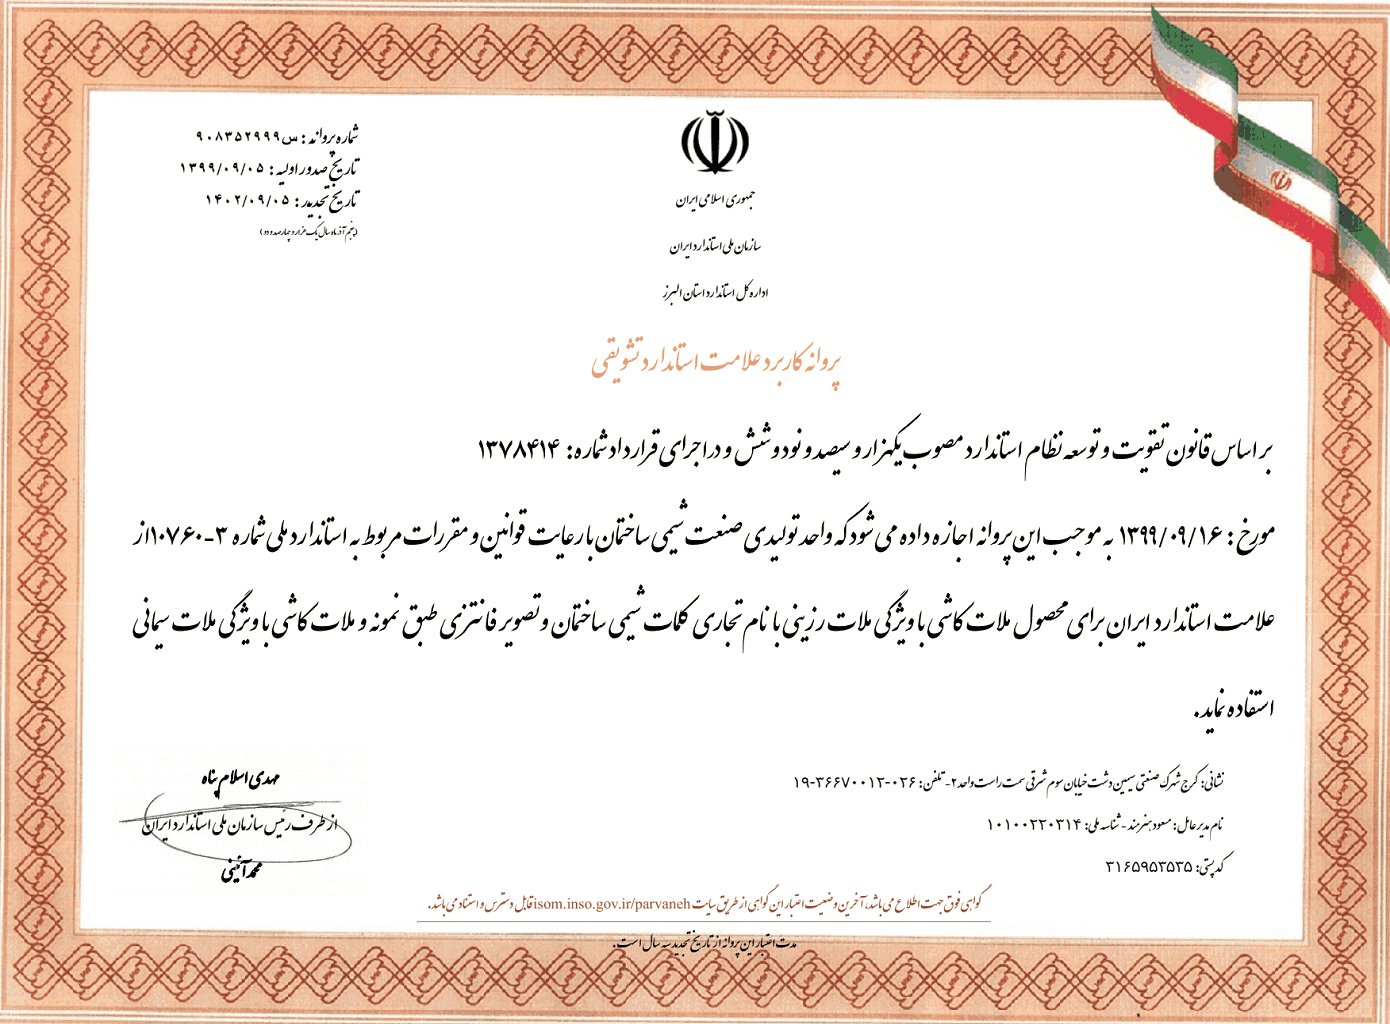 شماره پروانه : س۹۰۸۳۵۲۹۹۹
تاریخ صدور اولیه : ۱۳۹۹/۰۹/۰۵
تاریخ تجدید : ۱۴۰۲/۰۹/۰۵
(پنجم آذر ماه سال یک هزار و چهارصد و دو)
جمهوری اسلامی ایران
سازمان ملی استاندارد ایران
اداره کل استاندارد استان البرز
پروانه کاربرد علامت استاندارد تشویقی
بر اساس قانون تقویت و توسعه نظام استاندارد مصوب یکهزار و سیصد و نود و شش و در اجرای قرارداد شماره: ۱۳۷۸۴۱۴
مورخ : ۱۳۹۹/۰۹/۱۶ به موجب این پروانه اجازه داده می شود که واحد تولیدی صنعت شیمی ساختمان با رعایت قوانین و مقررات مربوط به استاندارد ملی شماره ۳-۱۰۷۶۰ از
علامت استاندارد ایران برای محصول ملات کاشی با ویژگی ملات رزینی با نام تجاری کلمات شیمی ساختمان و تصویر فانتزی طبق نمونه و ملات کاشی با ویژگی ملات سیمانی
استفاده نماید.
نشانی: کرج شهرک صنعتی سیمین دشت خیابان سوم شرقی سمت راست واحد ۲- تلفن: ۰۲۶-۳۶۶۷۰۰۱۲-۱۹
نام مدیرعامل: مسعود هنرمند - شناسه ملی: ۱۰۱۰۰۲۲۰۳۱۴
کدپستی: ۳۱۶۵۹۵۳۵۳۵
مهدی اسلام پناه
از طرف رئیس سازمان ملی استاندارد ایران
محمد آئینی
گواهی فوق جهت اطلاع می باشد، آخرین وضعیت اعتبار این گواهی از طریق سایت isom.inso.gov.ir/parvaneh قابل دسترس و استناد می باشد.
مدت اعتبار این پروانه از تاریخ تجدید سه سال است.